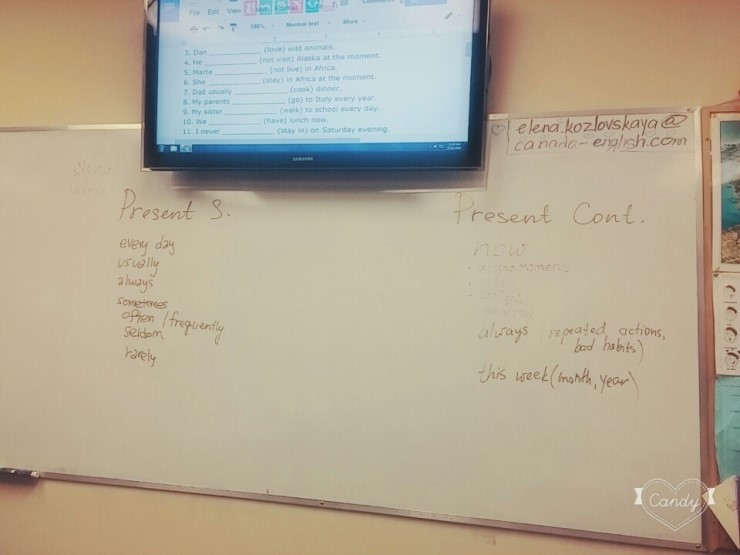 File Edit View
100% Normal text More
3. Dan __________ (love) wild animals.
4. He __________ (not visit) Alaska at the moment.
5. Marta __________ (not live) in Africa.
6. She __________ (stay) in Africa at the moment.
7. Dad usually __________ (cook) dinner.
8. My parents __________ (go) to Italy every year.
9. My sister __________ (walk) to school every day.
10. We __________ (have) lunch now.
11. I never __________ (stay in) on Saturday evening.
SAMSUNG
elena.kozlovskaya@
canada-english.com
Present S.
every day
usually
always
sometimes
often / frequently
seldom
rarely
Present Cont.
now
at the moment
always (repeated actions,
bad habits)
this week (month, year)
Candy